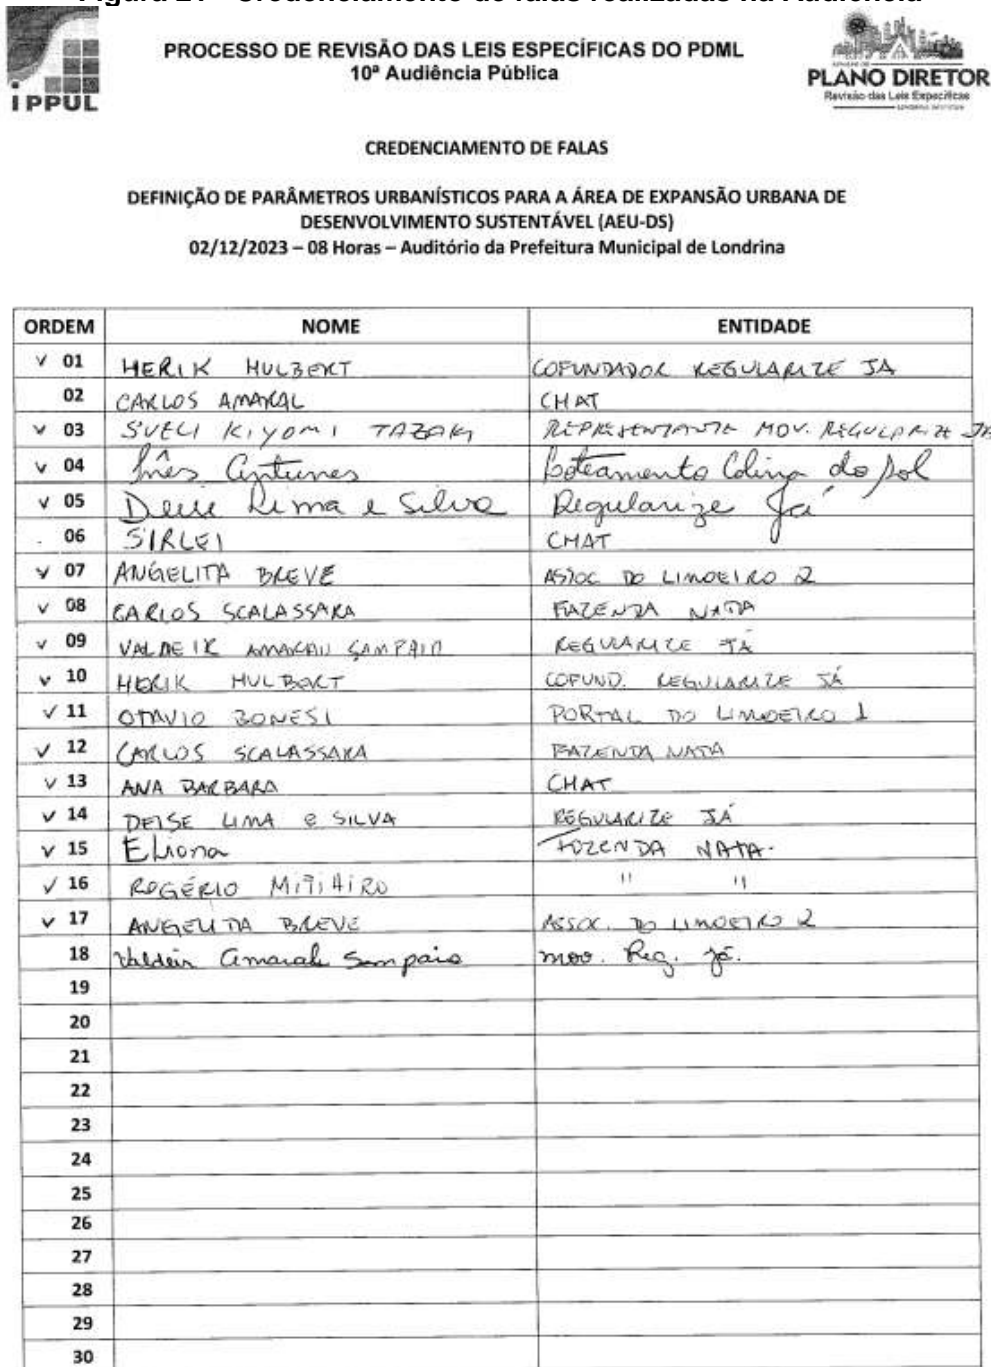 Figura 21 - Credenciamento de falas realizadas na Audiência
IPPUL
PROCESSO DE REVISÃO DAS LEIS ESPECÍFICAS DO PDML
10ª Audiência Pública
PLANO DIRETOR
Revisão das Leis Específicas
CREDENCIAMENTO DE FALAS
DEFINIÇÃO DE PARÂMETROS URBANÍSTICOS PARA A ÁREA DE EXPANSÃO URBANA DE
DESENVOLVIMENTO SUSTENTÁVEL (AEU-DS)
02/12/2023 – 08 Horas – Auditório da Prefeitura Municipal de Londrina
ORDEM NOME ENTIDADE
v 01 HERIK HULBERT COFUNDADOR REGULARIZE JA
02 CARLOS AMARAL CHAT
v 03 SUELI KIYOMI TAZAKI REPRESENTANTE MOV. REGULARIZE JA
v 04 Inês Antunes Loteamento Colina do Sol
v 05 Deise Lima e Silva Regularize Já
06 SIRLEI CHAT
v 07 ANGELITA BREVE ASSOC DO LIMOEIRO 2
v 08 CARLOS SCALASSARA FAZENDA NATA
v 09 VALDEIR AMARAL SAMPAIO REGULARIZE JÁ
v 10 HERIK HULBERT COFUND. REGULARIZE JÁ
v 11 OTAVIO BONESI PORTAL DO LIMOEIRO 1
v 12 CARLOS SCALASSARA FAZENDA NATA
v 13 ANA BARBARA CHAT
v 14 DEISE LIMA e SILVA REGULARIZE JÁ
v 15 Eliona FAZENDA NATA.
v 16 ROGÉRIO MITIHIRO " "
v 17 ANGELITA BREVE ASSOC. DO LIMOEIRO 2
18 Valdeir Amaral Sampaio mov. Reg. já.
19
20
21
22
23
24
25
26
27
28
29
30